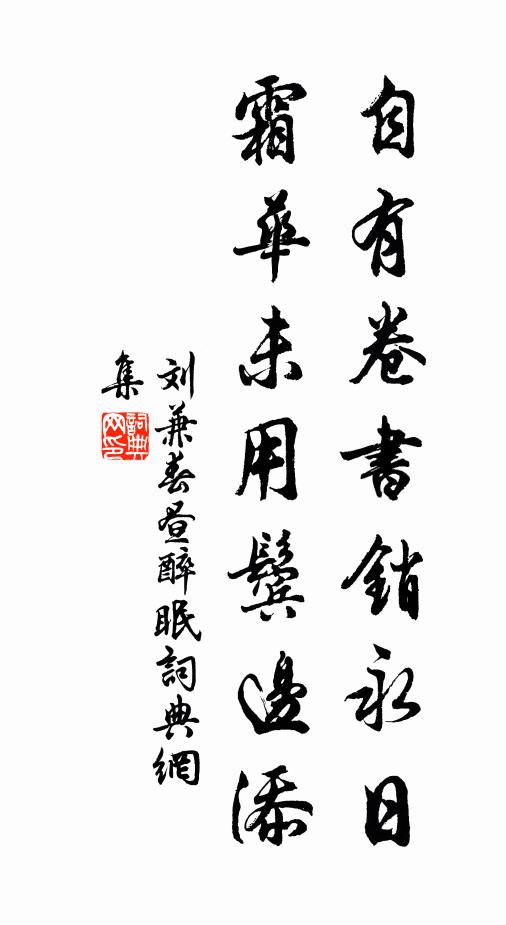 自有卷書銷永日
霜華未用鬢邊添
刘兼春昼醉眠詞典網
集
詞典网印